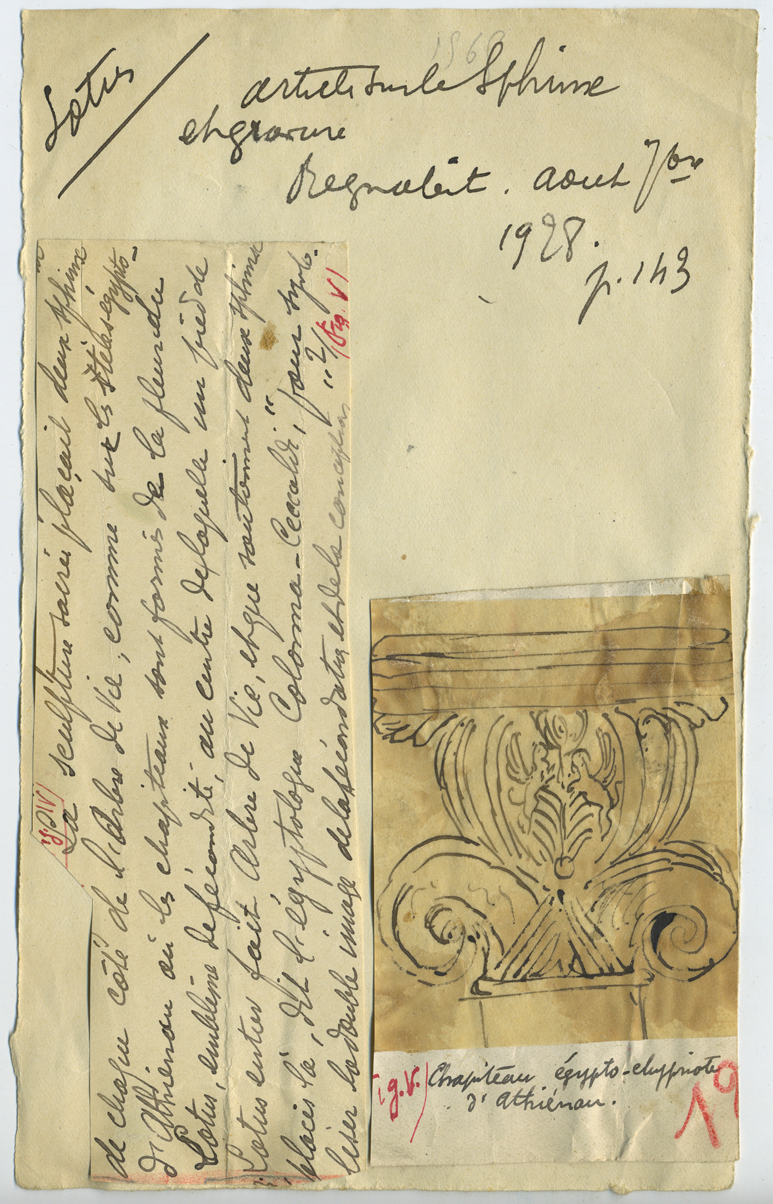 Lotus
1960
article sur le Sphinx
et gravure
Regnabit. août 7bre
1928.
p. 143
fig. IV)
La sculpture sacrée plaçait deux sphinx
de chaque côté de l'Arbre de Vie, comme sur les stèles égypto-
d'Athiénau où les chapiteaux sont formés de la fleur du
Lotus, emblème de fécondité, au centre de laquelle un pied de
Lotus entier fait Arbre de Vie, et que soutiennent deux sphinx
placés là, dit l'égyptologue Colonna-Ceccaldi, "pour symbo-
liser la double image de la fécondation et de la conception" 2/
(Fig. V)
ig. V.) Chapiteau égypto-chypriote
d'Athiénau.
19